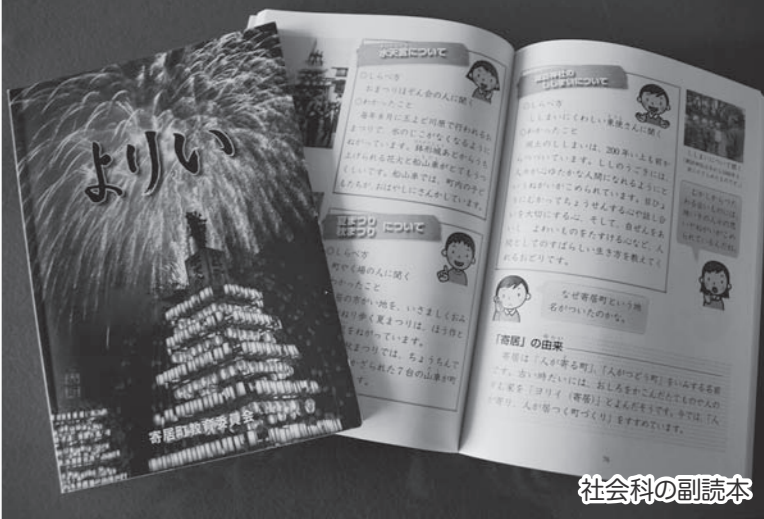 よりい
寄居町教育委員会
水天宮について
○しらべ方
おまつりほぞん会の人に聞く
○わかったこと
毎年8月に玉よど川原で行われるお
まつりで、水のじこがなくなるように
ねがっています。鉢形城あとからうち
上げられる花火と舟山車がとてもうつ
くしいです。舟山車では、町内の子ど
もたちが、おはやしにさんかしています。
夏まつり
秋まつり
について
○しらべ方
町やく場の人に聞く
かったこと
いさましくおみ
ねり歩く夏まつりは、ほう作と
をねがっています。
秋まつりでは、ちょうちんで
かざられた7台の山車が町
ししまいについて
○しらべ方
ししまいにくわしい
さんに聞く
○わかったこと
ししまいは、200年い上も前か
らつづいています。ししのうごきには、
人々が心ゆたかな人間になれるようにと
いうねがいがこめられています。
にむかってちょうせんする心や話し合
いを大切にする心、そして、自ぜんをあ
いし、よわいものをたすける心など、人
間としてのすばらしい生き方を教えてく
れるおどりです。
むかしからつた
わる
なぜ寄居町という地
名がついたのかな。
「寄居」の由来
寄居は「人が寄る町」、「人がつどう町」をいみする名前
です。古い時だいには、おしろをかこんだたてものや人の
む家を「ヨリイ(寄居)」とよんだそうです。今では、「人
が寄り、人が居つく町づくり」をすすめています。
社会科の副読本